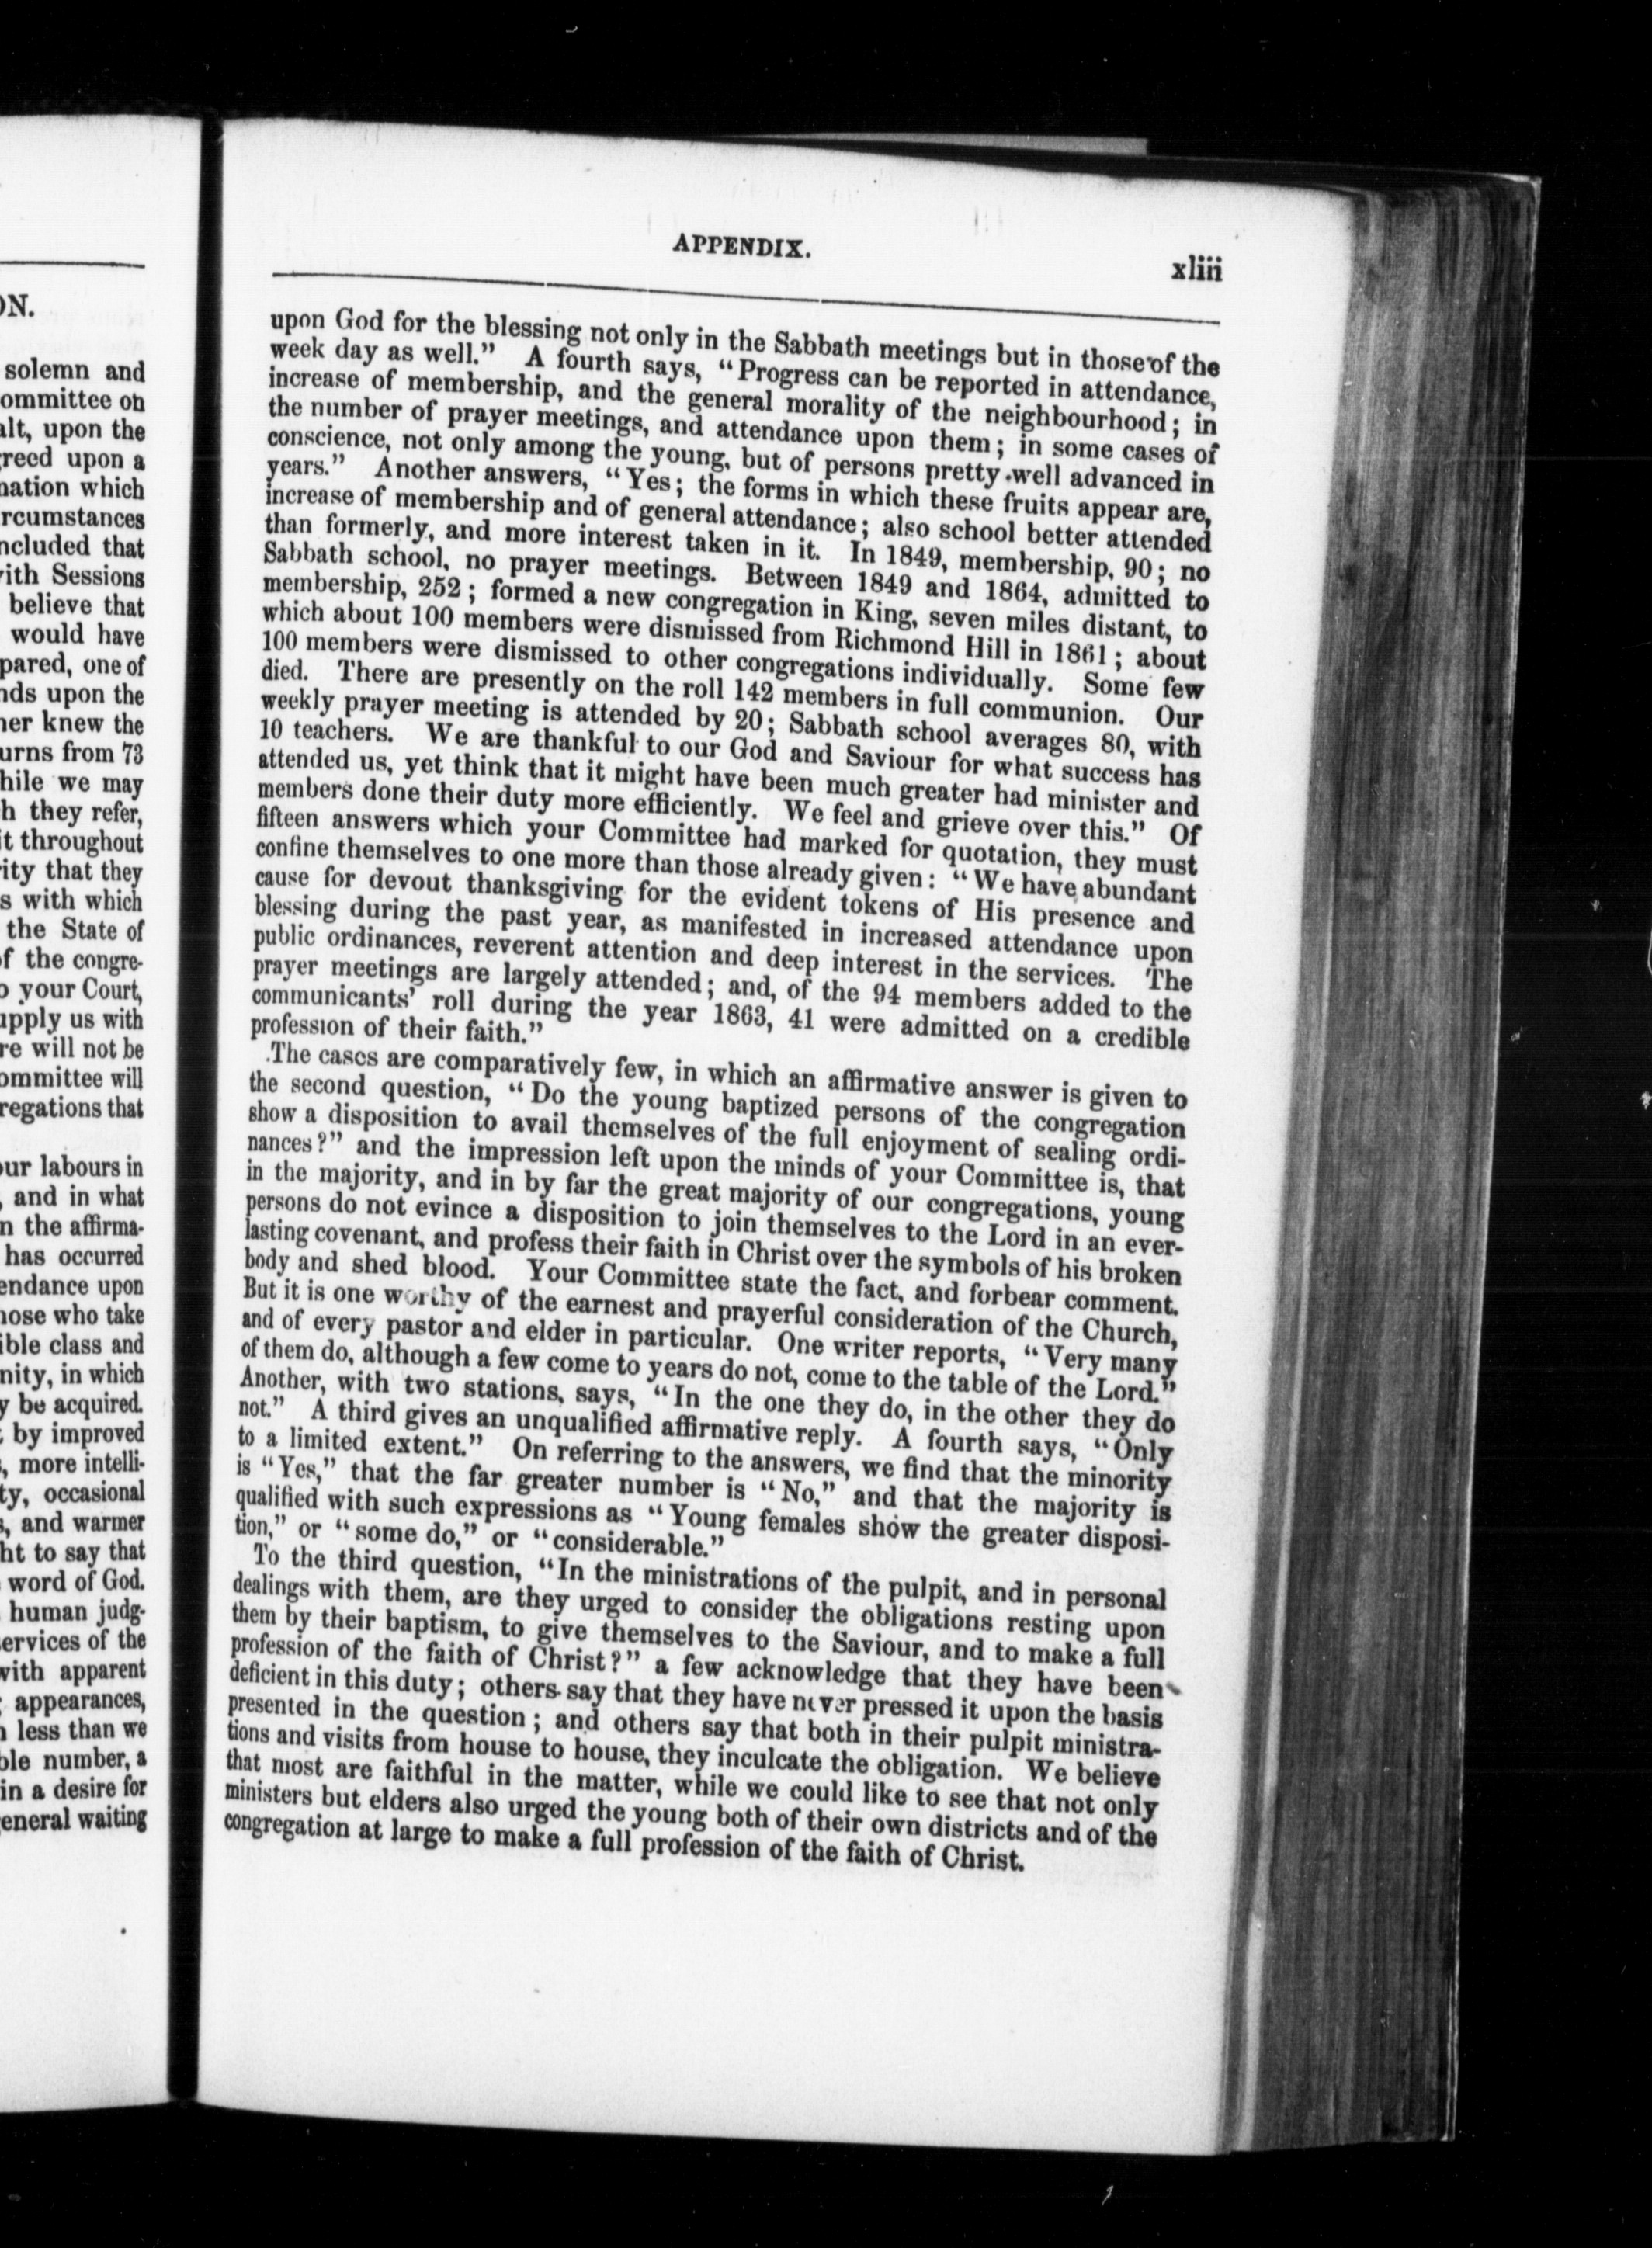 ON.
solemn and
ommittee on
alt, upon the
greed upon a
nation which
rcumstances
ncluded that
with Sessions
believe that
would have
pared, one of
nds upon the
her knew the
urns from 73
hile we may
h they refer,
it throughout
rity that they
s with which
the State of
of the congre-
o your Court,
upply us with
re will not be
ommittee will
regations that
our labours in
, and in what
n the affirma-
has occurred
endance upon
hose who take
ible class and
nity, in which
y be acquired.
by improved
, more intelli-
ty, occasional
s, and warmer
ht to say that
word of God.
human judg-
ervices of the
with apparent
appearances,
less than we
ble number, a
in a desire for
eneral waiting
APPENDIX.
xliii
upon God for the blessing not only in the Sabbath meetings but in those of the
week day as well." A fourth says, "Progress can be reported in attendance,
increase of membership, and the general morality of the neighbourhood; in
the number of prayer meetings, and attendance upon them; in some cases of
conscience, not only among the young, but of persons pretty well advanced in
years." Another answers, "Yes; the forms in which these fruits appear are,
increase of membership and of general attendance; also school better attended
than formerly, and more interest taken in it. In 1849, membership, 90; no
Sabbath school, no prayer meetings. Between 1849 and 1864, admitted to
membership, 252; formed a new congregation in King, seven miles distant, to
which about 100 members were dismissed from Richmond Hill in 1861; about
100 members were dismissed to other congregations individually. Some few
died. There are presently on the roll 142 members in full communion. Our
weekly prayer meeting is attended by 20; Sabbath school averages 80, with
10 teachers. We are thankful to our God and Saviour for what success has
attended us, yet think that it might have been much greater had minister and
members done their duty more efficiently. We feel and grieve over this." Of
fifteen answers which your Committee had marked for quotation, they must
confine themselves to one more than those already given: "We have abundant
cause for devout thanksgiving for the evident tokens of His presence and
blessing during the past year, as manifested in increased attendance upon
public ordinances, reverent attention and deep interest in the services. The
prayer meetings are largely attended; and, of the 94 members added to the
communicants' roll during the year 1863, 41 were admitted on a credible
profession of their faith."
The cases are comparatively few, in which an affirmative answer is given to
the second question, "Do the young baptized persons of the congregation
show a disposition to avail themselves of the full enjoyment of sealing ordi-
nances?" and the impression left upon the minds of your Committee is, that
in the majority, and in by far the great majority of our congregations, young
persons do not evince a disposition to join themselves to the Lord in an ever-
lasting covenant, and profess their faith in Christ over the symbols of his broken
body and shed blood. Your Committee state the fact, and forbear comment.
But it is one worthy of the earnest and prayerful consideration of the Church,
and of every pastor and elder in particular. One writer reports, "Very many
of them do, although a few come to years do not, come to the table of the Lord."
Another, with two stations, says, "In the one they do, in the other they do
not." A third gives an unqualified affirmative reply. A fourth says, "Only
to a limited extent." On referring to the answers, we find that the minority
is "Yes," that the far greater number is "No," and that the majority is
qualified with such expressions as "Young females show the greater disposi-
tion," or "some do," or "considerable."
To the third question, "In the ministrations of the pulpit, and in personal
dealings with them, are they urged to consider the obligations resting upon
them by their baptism, to give themselves to the Saviour, and to make a full
profession of the faith of Christ?" a few acknowledge that they have been
deficient in this duty; others say that they have never pressed it upon the basis
presented in the question; and others say that both in their pulpit ministra-
tions and visits from house to house, they inculcate the obligation. We believe
that most are faithful in the matter, while we could like to see that not only
ministers but elders also urged the young both of their own districts and of the
congregation at large to make a full profession of the faith of Christ.